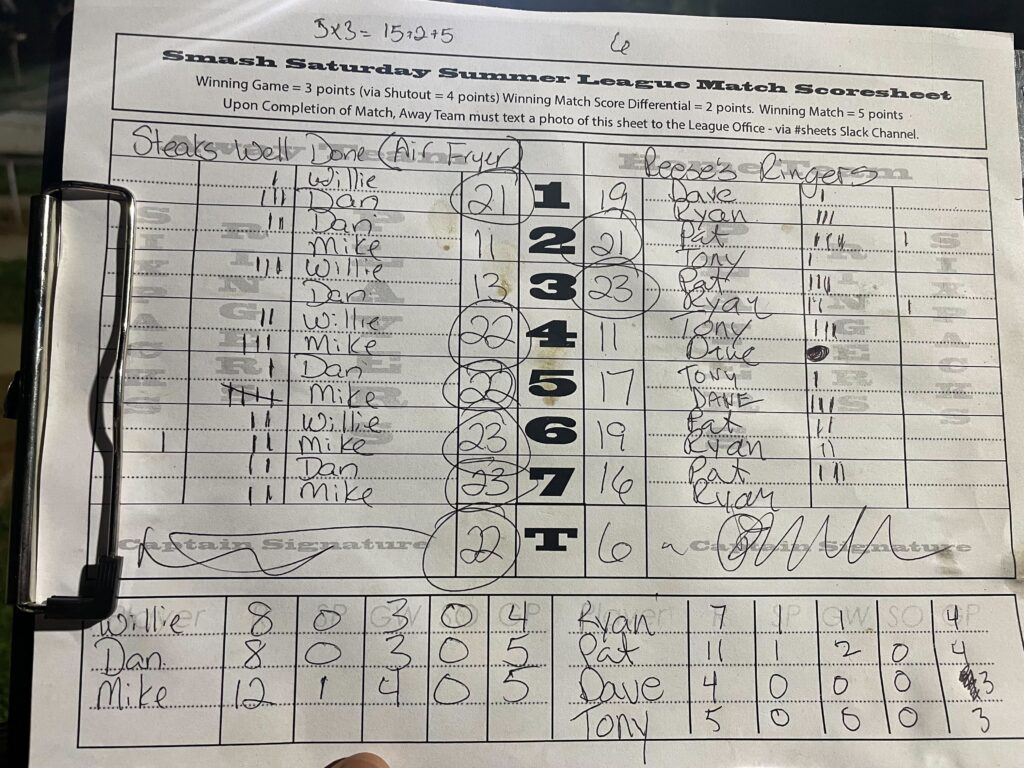 5x3 = 15+2+5 6
Smash Saturday Summer League Match Scoresheet
Winning Game = 3 points (via Shutout = 4 points) Winning Match Score Differential = 2 points. Winning Match = 5 points
Upon Completion of Match, Away Team must text a photo of this sheet to the League Office - via #sheets Slack Channel.
Steaks Well Done (Air Fryer) Reese's Ringers
Willie 21 1 19 Dave
Dan Ryan
Dan 11 2 21 Pat
Mike Tony
Willie 13 3 23 Pat
Dan Ryan
Willie 22 4 11 Tony
Mike Dave
Dan 22 5 17 Tony
Mike DAVE
Willie 23 6 19 Pat
Mike Ryan
Dan 23 7 16 Pat
Mike Ryan
Captain Signature 22 T 6 Captain Signature
Player SP GW SO GP Player SP GW SO GP
Willie 8 0 3 0 4 Ryan 7 1 1 0 4
Dan 8 0 3 0 5 Pat 11 1 2 0 4
Mike 12 1 4 0 5 Dave 4 0 0 0 3
Tony 5 0 0 0 3